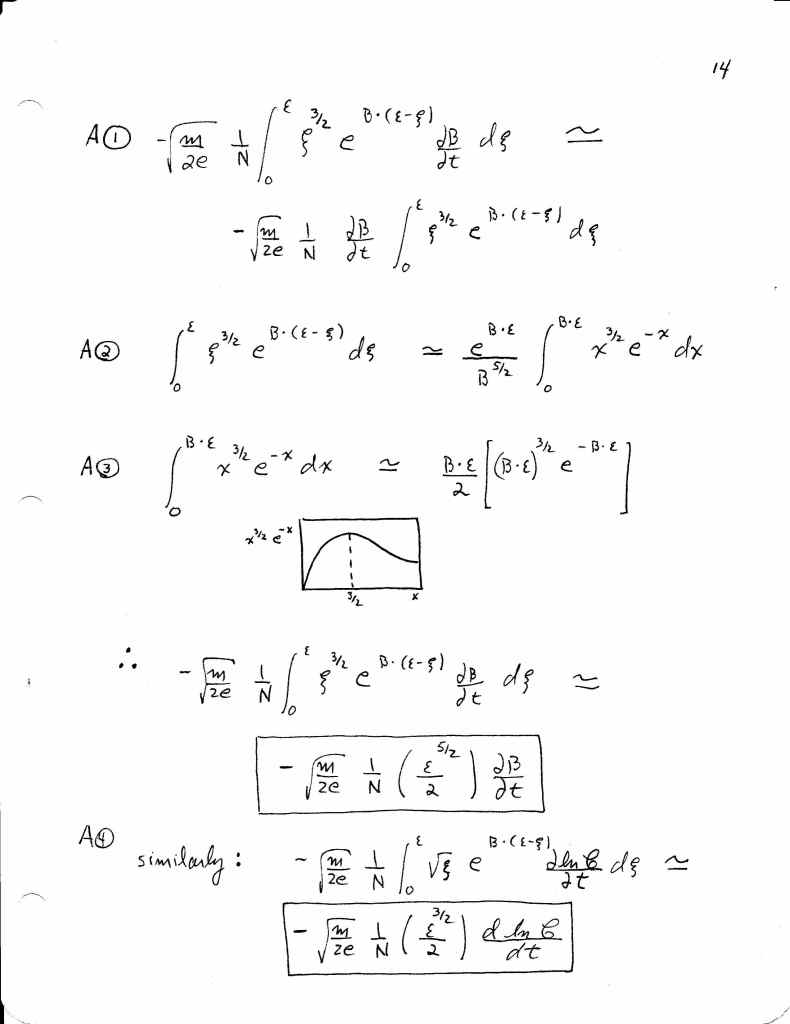 14
A① -√(m/2e) 1/N ∫₀^ε ξ^(3/2) e^(B·(ε-ξ)) ∂B/∂t dξ ≃
-√(m/2e) 1/N ∂B/∂t ∫₀^ε ξ^(3/2) e^(B·(ε-ξ)) dξ
A② ∫₀^ε ξ^(3/2) e^(B·(ε-ξ)) dξ ≃ e^(B·ε)/B^(5/2) ∫₀^(B·ε) x^(3/2) e^(-x) dx
A③ ∫₀^(B·ε) x^(3/2) e^(-x) dx ≃ B·ε/2 [(B·ε)^(3/2) e^(-B·ε)]
x^(3/2) e^(-x)
3/2 x
∴ -√(m/2e) 1/N ∫₀^ε ξ^(3/2) e^(B·(ε-ξ)) ∂B/∂t dξ ≃
-√(m/2e) 1/N (ε^(5/2)/2) ∂B/∂t
A④ similarly: -√(m/2e) 1/N ∫₀^ε √ξ e^(B·(ε-ξ)) ∂ln C/∂t dξ ≃
-√(m/2e) 1/N (ε^(3/2)/2) d ln C/dt